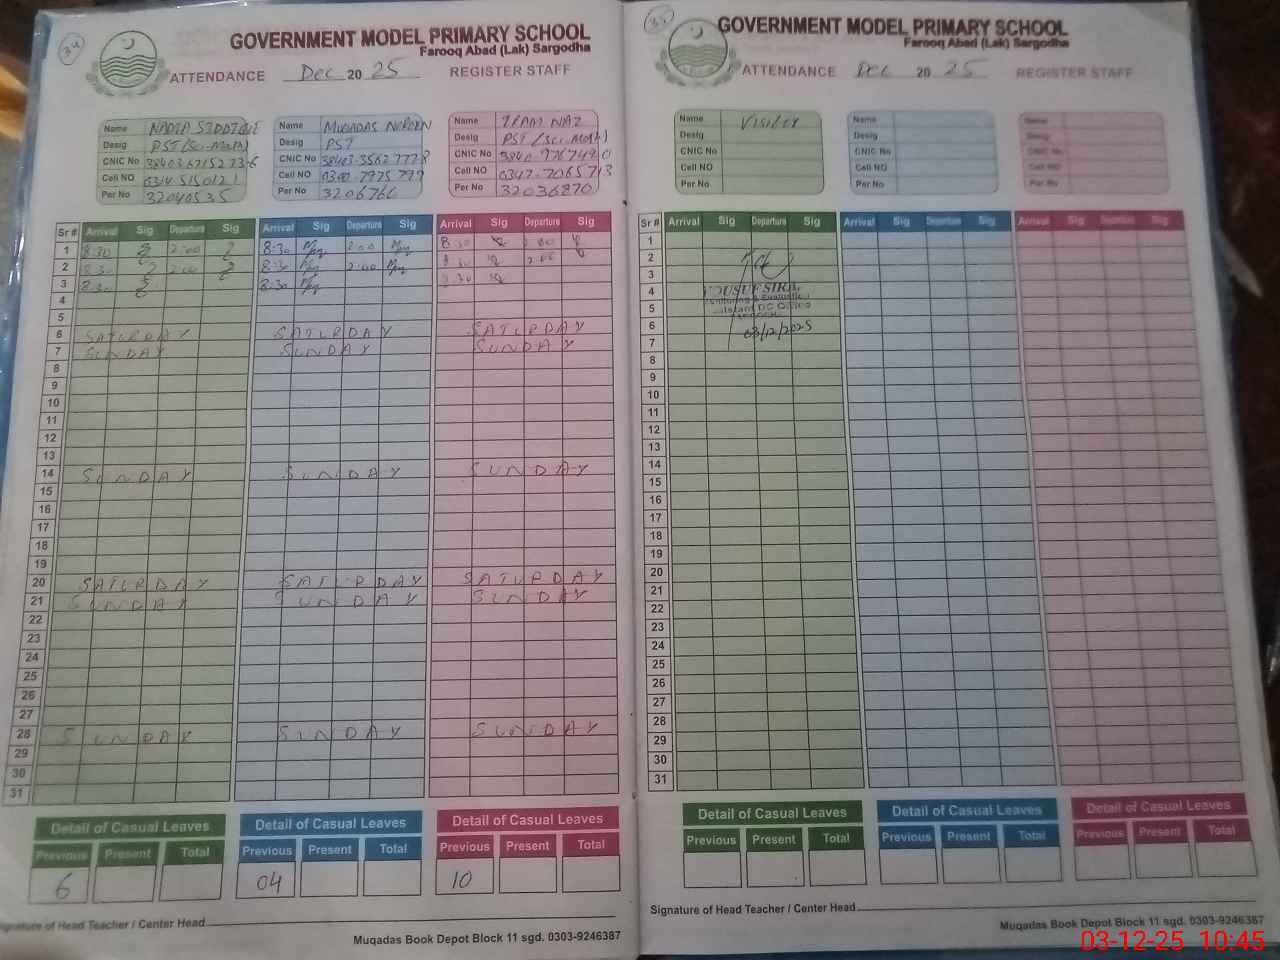 34
GOVERNMENT MODEL PRIMARY SCHOOL
Farooq Abad (Lak) Sargodha
ATTENDANCE Dec 2025 REGISTER STAFF
Name NADIA SIDDIQUE
Desig PST (Sci-Math)
CNIC No
Cell NO
Per No 32040535
Name MUQADAS NOREEN
Desig PST
CNIC No
Cell NO
Per No 3206766
Name IRAM NAZ
Desig PST (Sci-Math)
CNIC No
Cell NO 0347-7065713
Per No 32036870
Sr # Arrival Sig Departure Sig Arrival Sig Departure Sig Arrival Sig Departure Sig
1 8:30 2:00 8:30 2:00 8:30 2:00
2 8:30 2:00 8:30 2:00 8:30 2:00
3 8:30 8:30 8:30
4
5
6 SATURDAY SATURDAY SATURDAY
7 SUNDAY SUNDAY SUNDAY
8
9
10
11
12
13
14 SUNDAY SUNDAY SUNDAY
15
16
17
18
19
20 SATURDAY SATURDAY SATURDAY
21 SUNDAY SUNDAY SUNDAY
22
23
24
25
26
27
28 SUNDAY SUNDAY SUNDAY
29
30
31
Detail of Casual Leaves Detail of Casual Leaves Detail of Casual Leaves
Previous Present Total Previous Present Total Previous Present Total
6 04 10
Signature of Head Teacher / Center Head
Muqadas Book Depot Block 11 sgd. 0303-9246387
35
GOVERNMENT MODEL PRIMARY SCHOOL
Farooq Abad (Lak) Sargodha
ATTENDANCE Dec 2025 REGISTER STAFF
Name Visitor
Desig
CNIC No
Cell NO
Per No
Name
Desig
CNIC No
Cell NO
Per No
Name
Desig
CNIC No
Cell NO
Per No
Sr # Arrival Sig Departure Sig Arrival Sig Departure Sig Arrival Sig Departure Sig
1
2
3
4
5
6 03/12/2025
7
8
9
10
11
12
13
14
15
16
17
18
19
20
21
22
23
24
25
26
27
28
29
30
31
Detail of Casual Leaves Detail of Casual Leaves Detail of Casual Leaves
Previous Present Total Previous Present Total Previous Present Total
Signature of Head Teacher / Center Head
Muqadas Book Depot Block 11 sgd. 0303-9246387
03-12-25 10:45